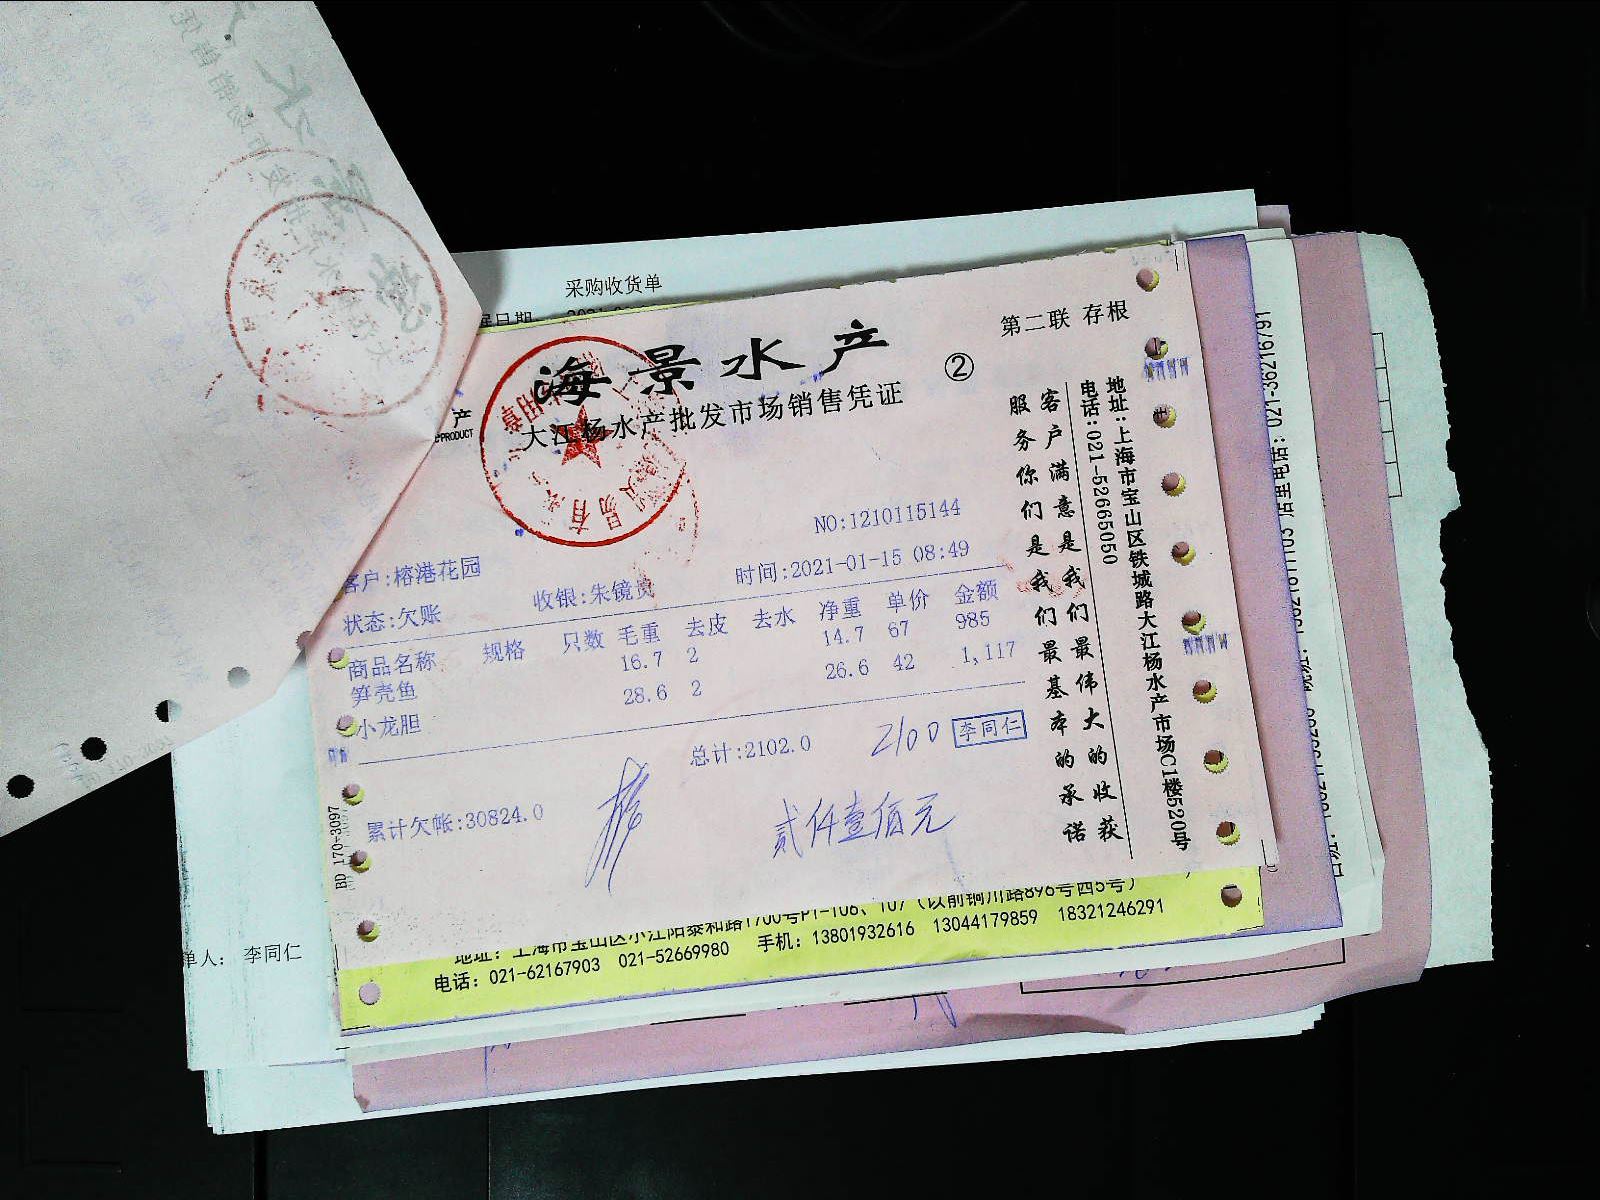 采购收货单
产
PRODUCT
第二联 存根
海景水产
②
大江杨水产批发市场销售凭证
NO:1210115144
客户:榕港花园
收银:朱镜
时间:2021-01-15 08:49
状态:欠账
商品名称 规格 只数 毛重 去皮 去水 净重 单价 金额
笋壳鱼 16.7 2 14.7 67 985
小龙胆 28.6 2 26.6 42 1,117
总计:2102.0
2100
李同仁
累计欠帐:30824.0
贰仟壹佰元
BD 170-3097
客户满意是我们最伟大的收获
服务你们是我们最基本的承诺
地址:上海市宝山区铁城路大江杨水产市场C1楼520号
电话:021-52665050
单人: 李同仁
地址: 上海市宝山区小江阳泰和路1700号P1-106、107 (以前铜川路896号西5号)
电话: 021-62167903 021-52669980 手机: 13801932616 13044179859 18321246291
电话: 021-36216791